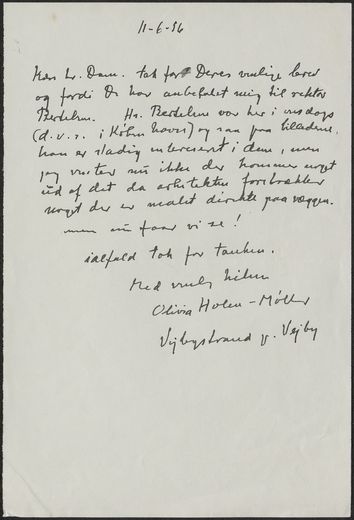 11-6-56
Kære hr. Dam. tak for Deres venlige brev
og fordi De har anbefalet mig til rektor
Bertelsen. Hr. Bertelsen var her i onsdags
(d.v.s. i Købnhavn) og saa paa billederne.
han er stadig interesseret i dem, men
jeg venter nu ikke der kommer noget
ud af det da arkitekten foretrækker
noget der er malet direkte paa væggen.
men nu faar vi se!
ialfald tak for tanken.
Med venlig hilsen
Olivia Holm-Møller
Vejbystrand p. Vejby